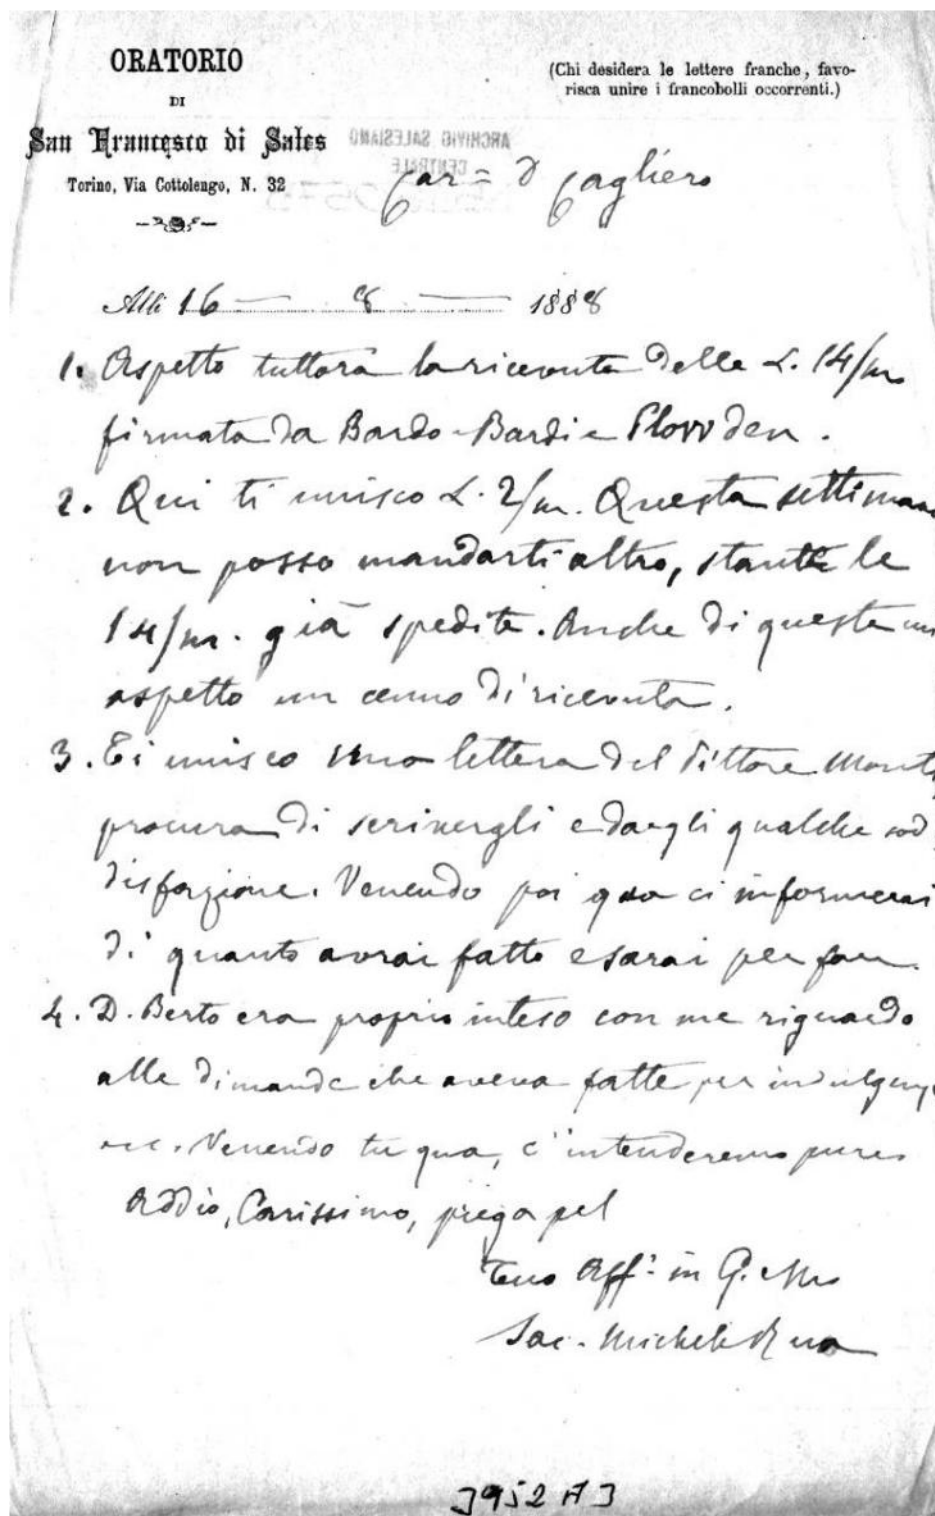 ORATORIO
DI
San Francesco di Sales
Torino, Via Cottolengo, N. 32
(Chi desidera le lettere franche, favo-
risca unire i francobolli occorrenti.)
ARCHIVIO SALESIANO
CENTRALE
Car= D Cagliero
Alli 16 8 1888
1. Aspetto tuttora la ricevuta delle L. 14/m
firmata da Bardo-Bardi e Plowden.
2. Qui ti unisco L. 2/m. Questa settimana
non posso mandarti altro, stante le
14/m. già spedite. Anche di queste
aspetto un cenno di ricevuta.
3. Ti unisco una lettera del Pittore
procura di scrivergli e dargli qualche sod
disfazione. Venendo poi qua ci informerai
di quanto avrai fatto e sarai per fare.
4. D. Berto era proprio inteso con me riguardo
alle dimande che aveva fatte per
ecc. Venendo tu qua, c'intenderemo pure
Addio, Carissimo, prega pel
Tuo Aff. in G. e M.
Sac. Michele Rua
3952 A 3